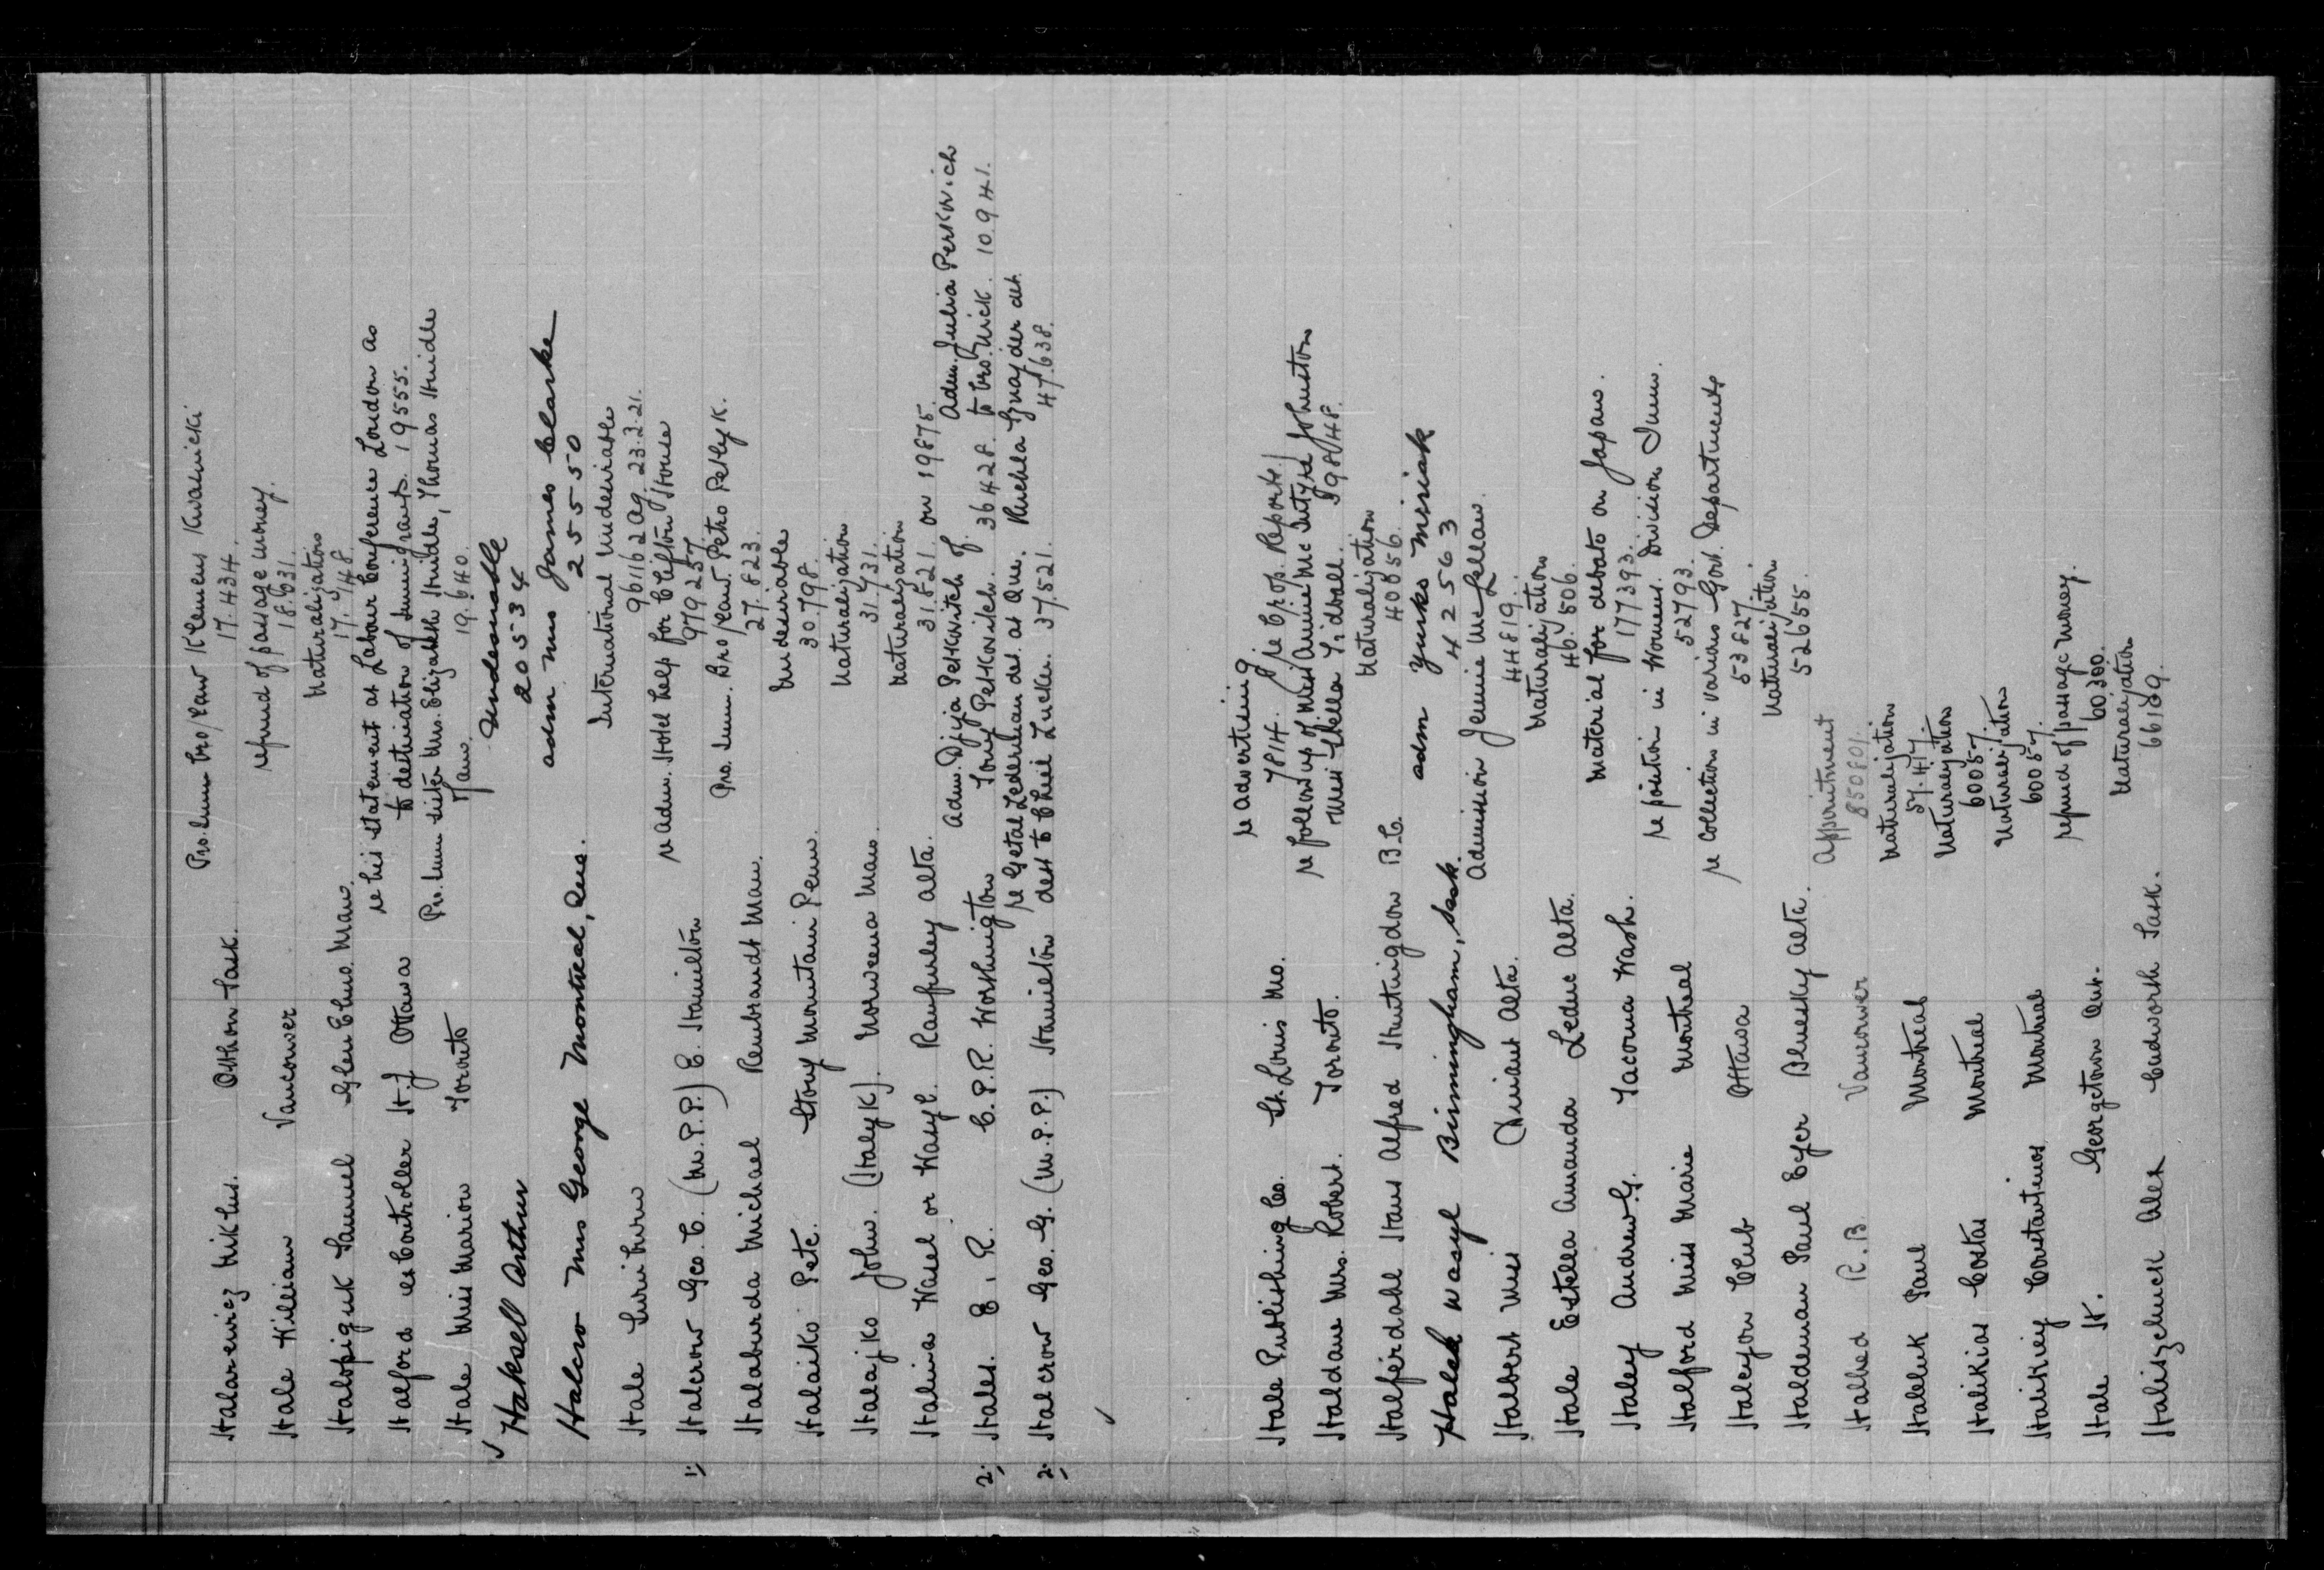 Halarewicz Mikhus. Othon Sask. Pro. Imm bro/law Klemens Kwasnicki
17.434.
Hale William Vancouver refund of passage money.
18.631.
Halopiguk Samuel Glen Elmo. Man. Naturalization
17.948.
Halford ex Controller H.J Ottawa re his statement at Labour Conference London as
to destination of Immigrants. 19555.
Hale Miss Marion Toronto Pro. Imm sister Mrs. Elizabeth Hindle, Thomas Hindle
Man. 19.640.
✓ Haksell Arthur Undesirable
20534
Halcro Mrs George Montreal, Que. adm Mrs James Clarke
25550
Hale Swinburn International Undesirable
961162 Ag. 23.2.21.
1; Halcrow Geo. C. (M.P.P.) E. Hamilton re Adm. Hotel help for Clifton House
979257.
Halaburda Michael Rembrandt Man. Pro. Imm. Bro/law Petro Petlyk.
27.823.
Halaiko Pete. Stony Mountain Penn. Undesirable
30.798.
Halajko John. (Halyk). Norweena Man. Naturalization
31.731.
Halina Wasel or Wasyl. Ranfurley Alta. Naturalization
31.521. on 19875.
2; Hales. E. R. C.P.R. Workington Adm. Dzija Petkowitch of Adm. Julia Perkovich
Tony Petkovitch. 36428. to bro. Nick. 10941.
2; Halcrow Geo. G. (M.P.P.) Hamilton re Getal Lederman det. at Que. Ruchla Gnajder det.
dest to Chiel Lucker. 37.521. 47.638.
✓
Hale Publishing Co. St. Louis Mo. re advertising
7814. re Crop. Reports
Haldane Mrs. Robert. Toronto. re follow up of Miss Annie McIntyre Johnston
Miss Stella Tidball. 39848.
Halferdahl Hans Alfred Huntingdon B.C. Naturalization
40856.
Halek Wasyl Birmingham, Sask. adm Yurko Misiak
42563
Halbert Miss Chiniant Alta. Admission Jennie McLellan.
44819.
Hale Estella Amanda Leduc Alta. Naturalization
46.506.
Haley Andrew G. Tacoma Wash. Material for debate on Japans.
177393.
Halford Miss Marie Montreal re position in Womens. Division Imm.
52793.
Halcyon Club Ottawa re Collection in various Govt. Departments
53827.
Haldeman Paul Eyer Bluesky Alta. Naturalization
52655.
Halhed R.B. Vancouver Appointment
850801.
Haleluk Paul Montreal Naturalization
57.417.
Halikias Costas Montreal Naturalization
60057.
Halikiey Constantinos Montreal Naturalization
60057.
Hale H. Georgetown Ont. refund of passage money.
60300.
Haliszchuck Alex Cudworth Sask. Naturalization
66189.